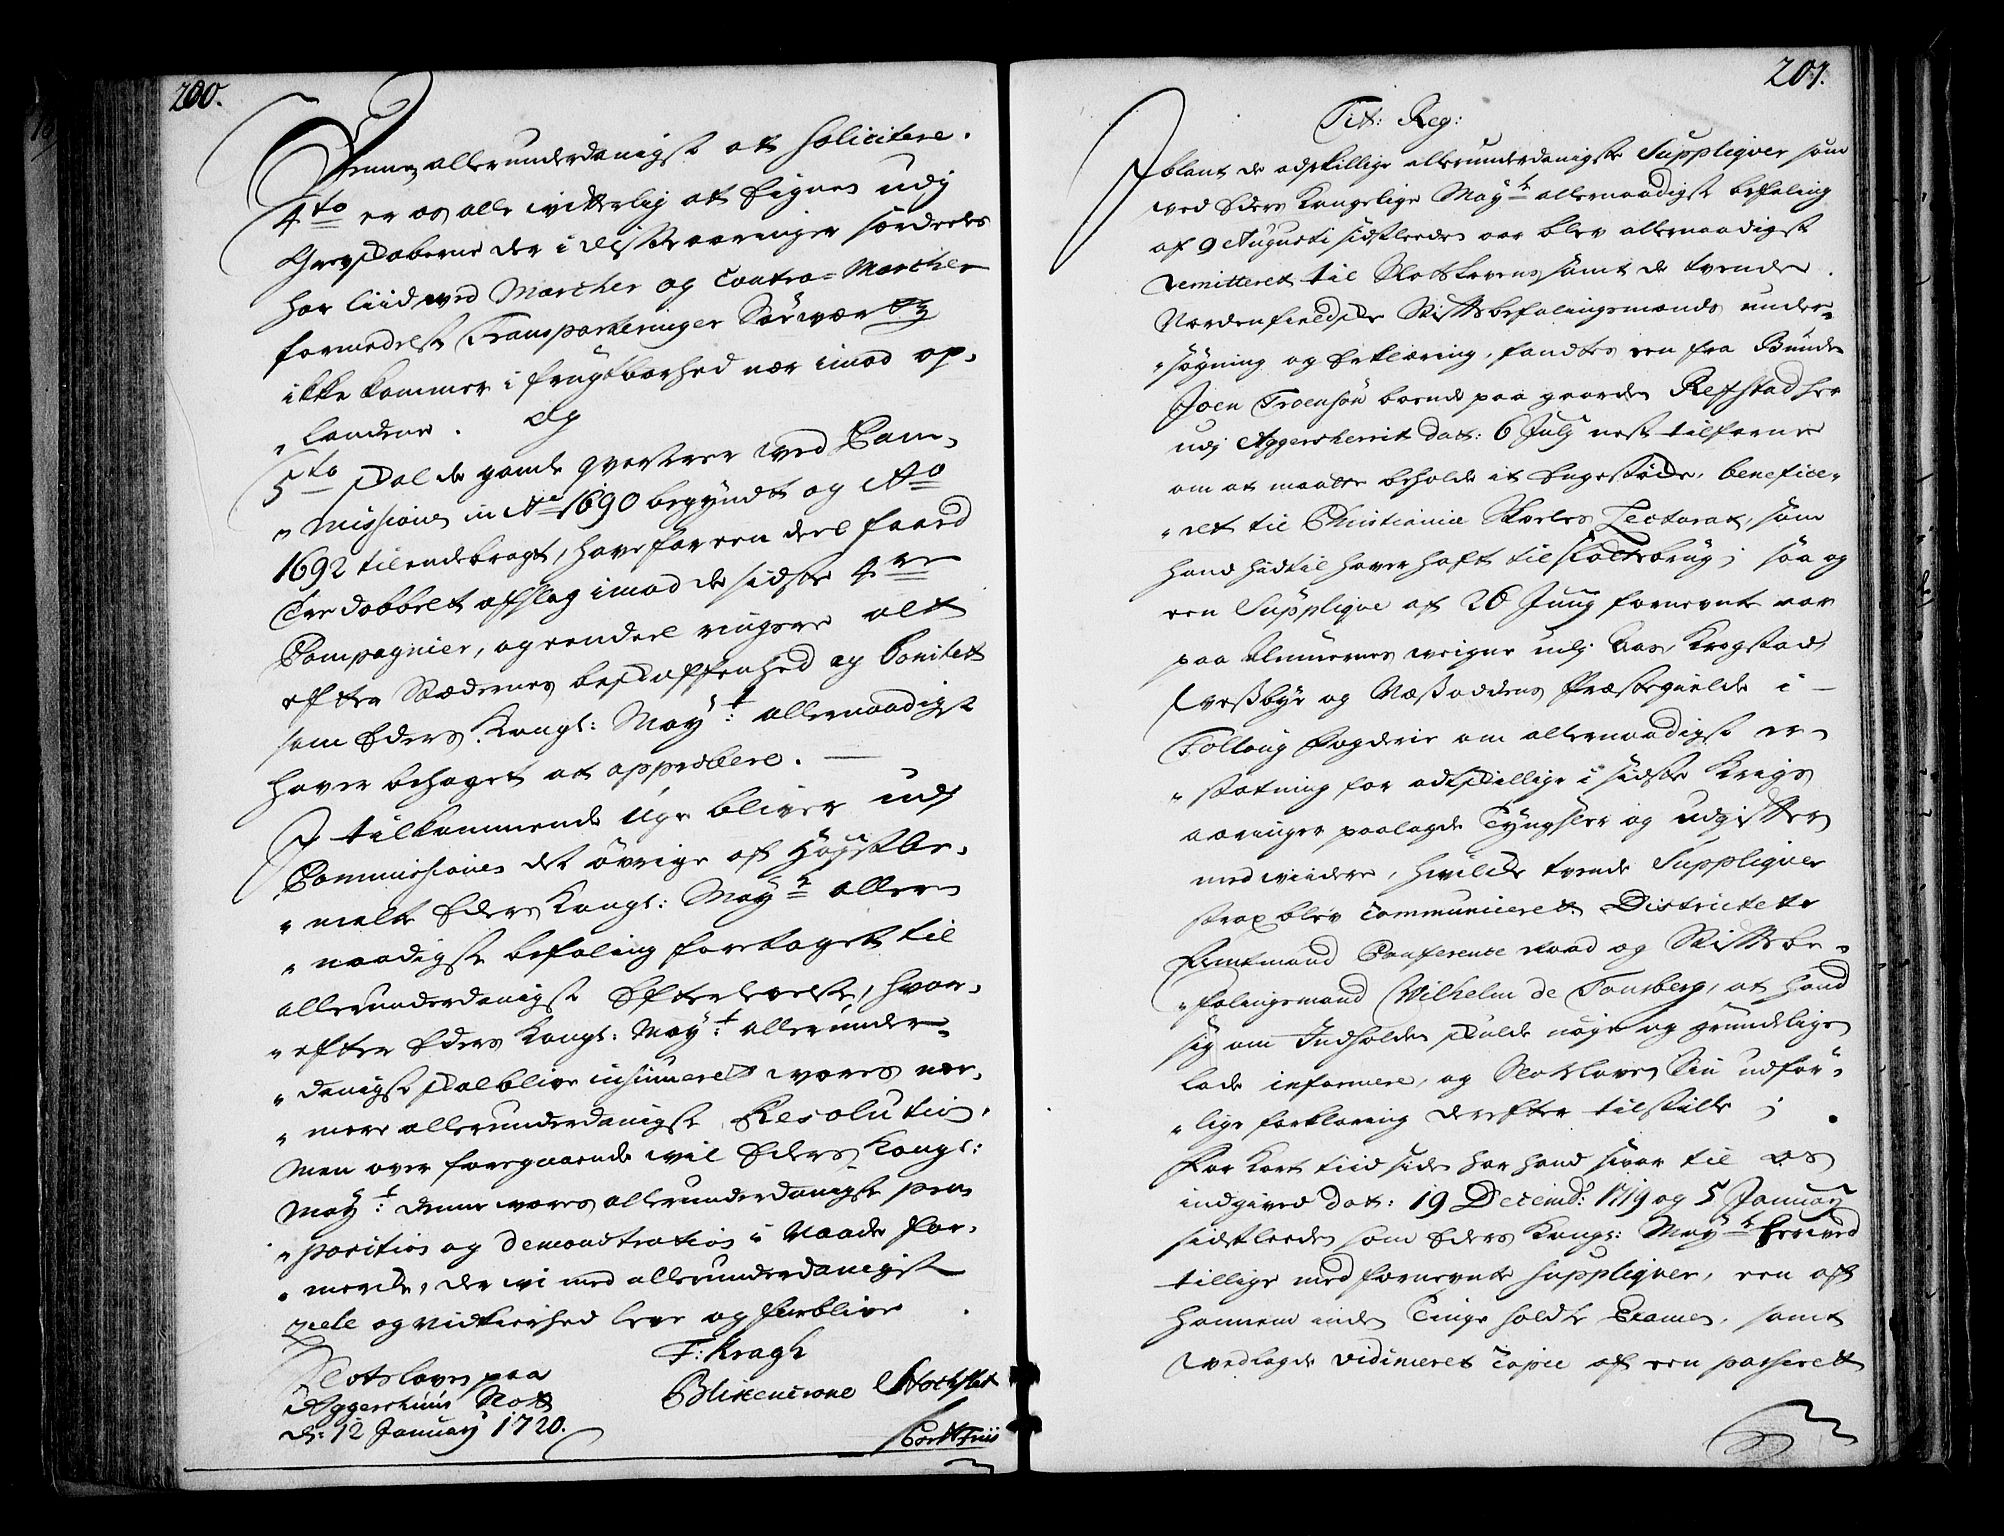 200.
allerunderdanigst at Solicitere.
4to er os alle witterlig at Eignes udj
Grevskaberne der i disse aaringer særdeeles
har liid ved Marcher og Contra-Marcher
formedelst Transporteringer
ikke kommer i frugtbarhed nær imod op-
landene. Og
5to Skal de gamle qvarterer ved Com-
missionen in Ao 1690 begyndt og Ao
1692 tilendebragt, have for een deel faaed
Tredobbelt afslag imod de sidste 4re
Compagnier, og een deel ringere alt
efter Stædernes beskaffenhed og bonitet
som Eders Kongl: Mayt: allernaadigst
haver behaget at approbere.
I tilkommende uge bliver udj
Commissionen det øvrige af Høystbe-
melte Eders Kongl: Mayts aller-
naadigste befaling foretaget til
allerunderdanigst Efterlevelse, hvor-
efter Eders Kongl: Mayt: allerunder-
danigst skal blive insinueret vores nær-
mere allerunderdanigste Resolution,
Men over foregaaende wil Eders Kongl:
Mayt: denne wores allerunderdanigste pro-
position og demonstration i Naade for-
mercke, der wi med allerunderdanigst
ziele og nidkierhed leve og forblive
Slotsloven paa
Aggershuus Slott
d: 12 January 1720.
F: Kragh
Blixencrone
201.
Tit: Reg:
Iblant de adskillige allerunderdanigste Suppliqver som
ved Eders Kongelige Mayts allernaadigst befaling
af 9 Augusti sidstleeden aar blev allernaadigst
remitteret til Slotsloven samt de tvende
Nordenfieldske Stiftsbefalingsmænds under-
søgning og Erklæring, fandtes een fra Bonde
Joen Troensøn boende paa gaarden Refstad her
udj Aggersherrit dat: 6 July nest tilforne
om at maatte beholde it Engestøcke, benefice-
ret til Christianiæ Skoeles Lectorat, som
hand hidtil haver haft til slottebrug; saa og
een Supplique af 26 Juny fornevnte aar
paa Almuernes weigne udj Aas, Krogstad
Westbye og Næsoddens Præstegielde i
Follaug Fogderie om allernaadigst er-
statning for adskillige i sidste Krigs
aaringer paalagde Tyngsler og udgifter
med widere, hvilcke tvende Suppliqver
strax blev communiceret Districtets
Amtmand Conference Raad og Stiftsbe-
falingsmand Wilhelm de Tonsberg, at hand
sig om Indholden skulde nøye og grundelige
lade informere, og Slotsloven Sin udfør-
lige forklaring derefter tilstille;
For kort tiid siden har hand svar til os
indgived dat: 19 Decembr: 1719 og 5 January
sidstleeden som Eders Kongl: Mayts herved
tillige med fornevnte Suppliqver, een af
hannem inden Tinge holdte Examen, samt
wedlagde vidimeret Copie af een passeret